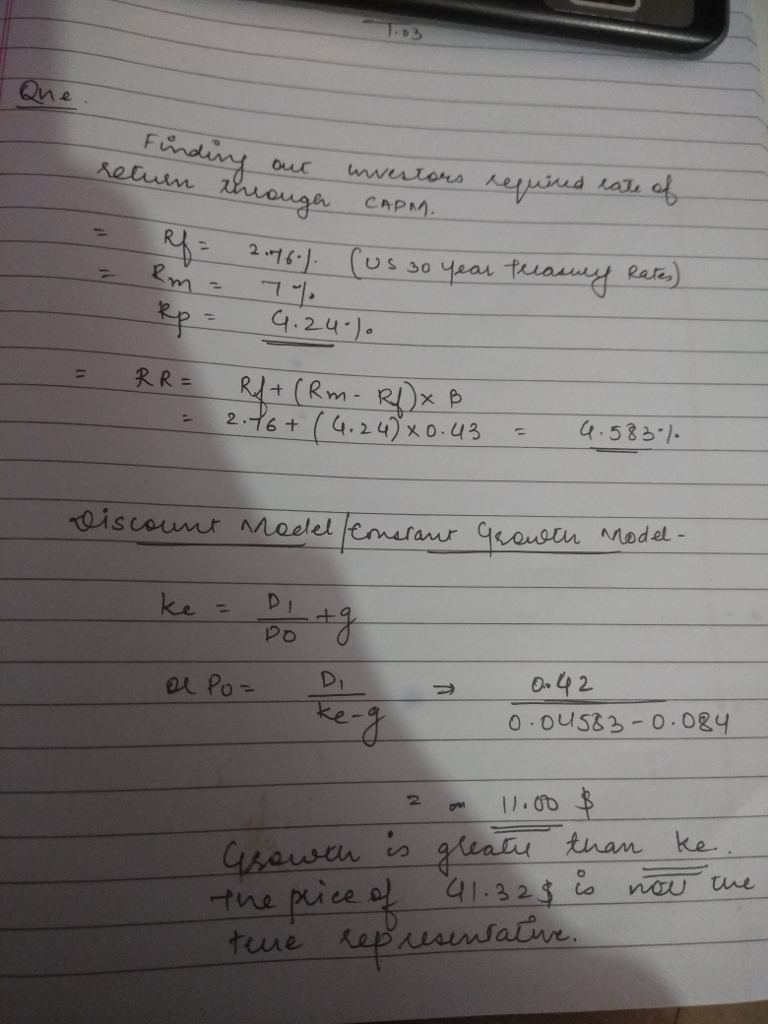 1.03
Que.
Finding out investors required rate of
return through CAPM.
= Rf = 2.76%. (US 30 year treasury Rates)
= Rm = 7%.
Rp = 4.24%.
= RR = Rf + (Rm - Rf) × β
= 2.76 + (4.24) × 0.43 = 4.583%.
Discount Model/Constant Growth Model-
ke = D1/P0 + g
or P0 = D1/ke-g ⇒ 0.42/0.04583-0.084
= - 11.00 $
Growth is greater than ke.
the price of 41.32$ is not the
true representative.